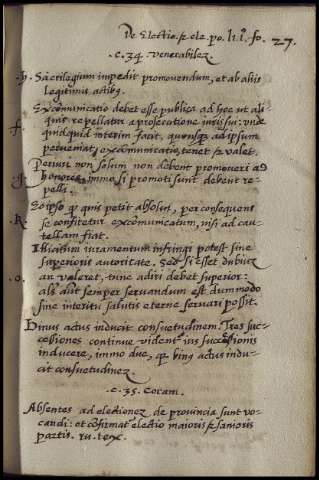 De Electio. & ele. po. li. i°. fo. 27.
.c. 34. venerabilez.
.h. Sacrilegium impedit promovendum, et ab aliis
legitimis actibꝫ.
Excomunicatio debet esse publica ad hoc ut ali-
.f. quis repellatur a prosecutione iuris sui: unde
quidquid interim facit, quousqꝫ ad ipsum
perveniat excommunicatio, tenet & valet.
Periuri non solum non debent promoveri ad
.g. honores, immo si promoti sunt debent re-
pelli.
.K. Eo ipso qꝫ quis petit absolvi, per consequens
se confitetur excomunicatum, nisi ad cau-
tellam fiat.
Illicitum iuramentum infringi potest sine
superioris autoritate. Sed si esset dubium
.o. an valeret, tunc adiri debet superior:
alias aut semper servandum est dummodo
sine interitu salutis eterne servari possit.
Binus actus inducit consuetudinem. Tres suc-
cessiones continue videntur ius successionis
inducere, immo due, qꝫ binus actus indu-
cit consuetudinez.
.c. 35. Coram.
Absentes ad electionez de provincia sunt vo-
candi: et cōfirmat electio maioris & sanioris
partis. iu. tex.